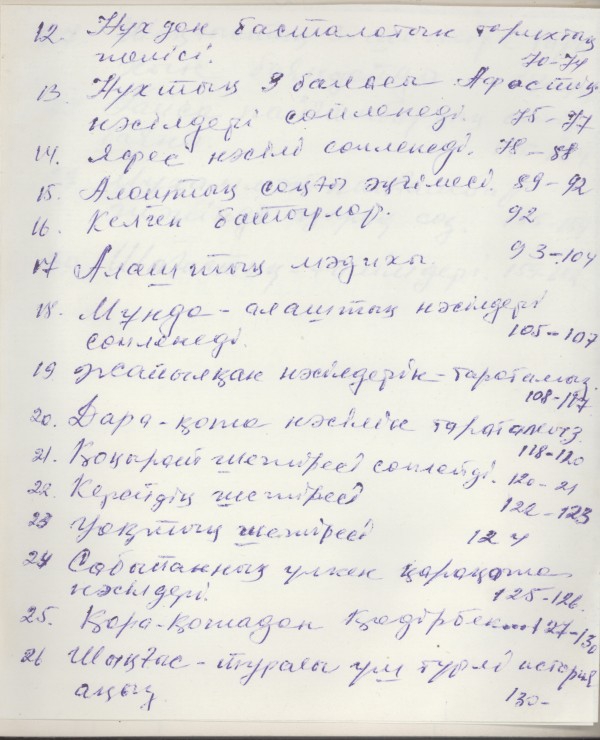 12. Нухдан басталатын тарихтың
желісі. 70-74
13. Нухтың 3 баласы
нәсілдері сөйленеді. 75-77
14. Яфес нәсілі сөйленеді. 78-88
15. Алаштың соңғы әңгімесі. 89-92
16. Келген батырлар. 92
17 Алаштың мәдихы 93-104
18. Мұнда-алаштың нәсілдері
сөйленеді. 105-107
19 Жайылқан нәсілдерін-таратамыз.
108-117
20. Дара-қожа нәсілін таратамыз
118-120
21. Қоңырат шежіресі сөйлейді. 120-21
22. Керейдің шежіресі
122-123
23 Уақтың шежіресі 124
24 Сабытанның үлкен қарақожа
нәсілдері. 125-126.
25. Қара-қожадан Қадірбек 127-130
26 Шыңғас-туралы үш түрлі история
130-